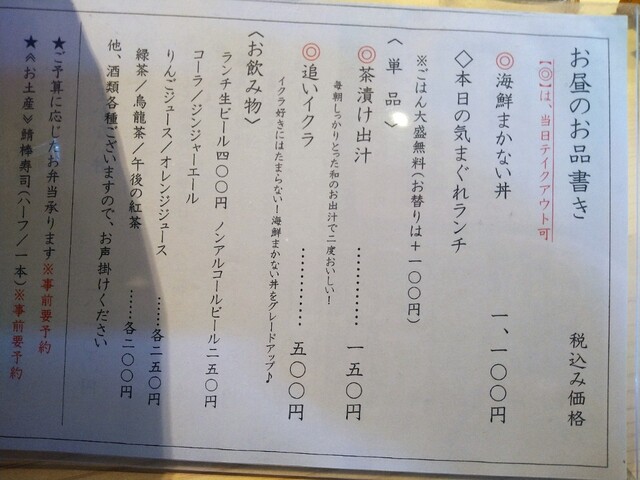 お昼のお品書き 税込み価格
【◎】は、当日テイクアウト可
◎海鮮まかない丼
◇本日の気まぐれランチ 一、一〇〇円
※ごはん大盛無料(お替りは+一〇〇円)
〈単品〉
◎茶漬け出汁 ………… 一五〇円
毎朝しっかりとった和のお出汁で二度おいしい!
◎追いイクラ ………… 五〇〇円
イクラ好きにはたまらない!海鮮まかない丼をグレードアップ♪
〈お飲み物〉
ランチ生ビール四〇〇円 ノンアルコールビール二五〇円
コーラ/ジンジャーエール
りんごジュース/オレンジジュース ……各二五〇円
緑茶/烏龍茶/午後の紅茶 ……各二〇〇円
他、酒類各種ございますので、お声掛けください
★ご予算に応じたお弁当承ります※事前要予約
★《お土産》鯖棒寿司(ハーフ/一本)※事前要予約